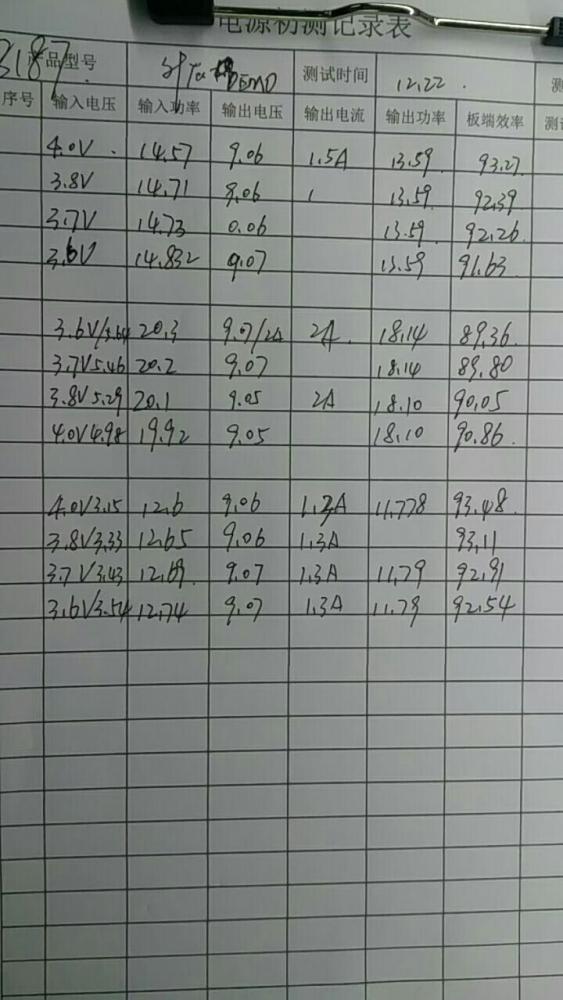 电源初测记录表
3187 产品型号 DEMO 测试时间 12.22. 测
序号 输入电压 输入功率 输出电压 输出电流 输出功率 板端效率 测试
4.0V 14.57 9.06 1.5A 13.59 93.27
3.8V 14.71 9.06 13.59 92.39
3.7V 14.73 0.06 13.59 92.26
3.6V 14.832 9.07 13.59 91.63
3.6V/5.64 20.3 9.07/2A 2A 18.14 89.36
3.7V5.46 20.2 9.07 18.14 89.80
3.8V5.29 20.1 9.05 2A 18.10 90.05
4.0V4.98 19.92 9.05 18.10 90.86
4.0V3.15 12.6 9.06 1.3A 11.778 93.48
3.8V3.33 12.65 9.06 1.3A 93.11
3.7V3.43 12.69 9.07 1.3A 11.79 92.91
3.6V3.54 12.74 9.07 1.3A 11.79 92.54